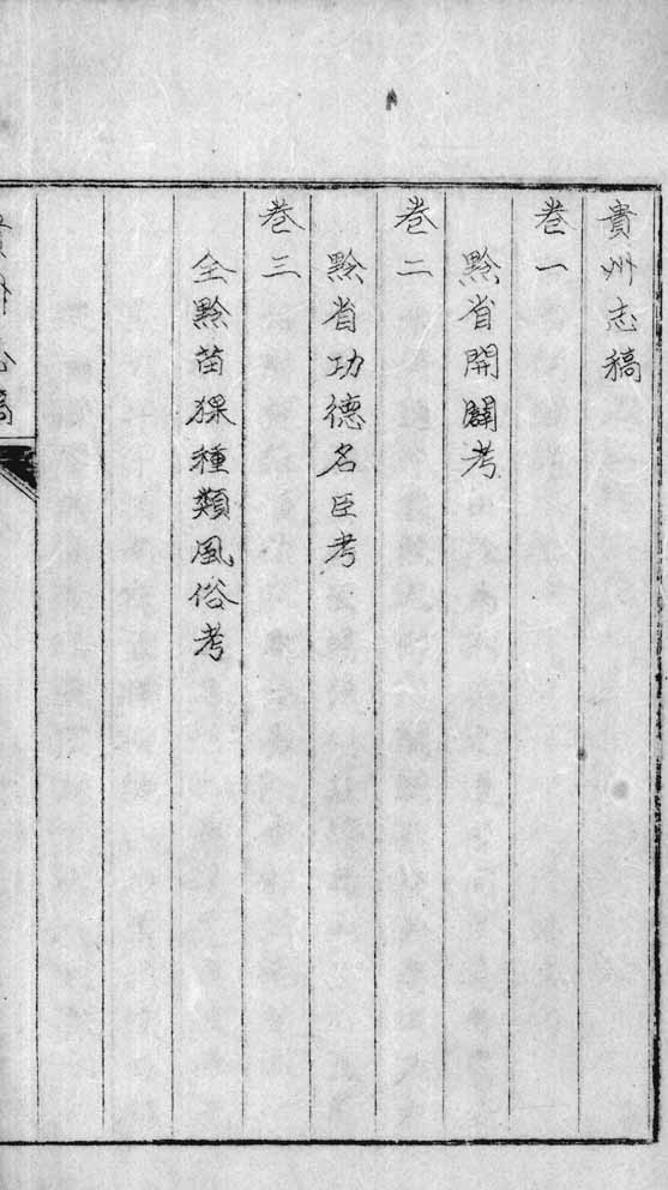 貴州志稿
卷一
黔省開闢考
卷二
黔省功德名臣考
卷三
全黔苗猓種類風俗考
貴州志稿